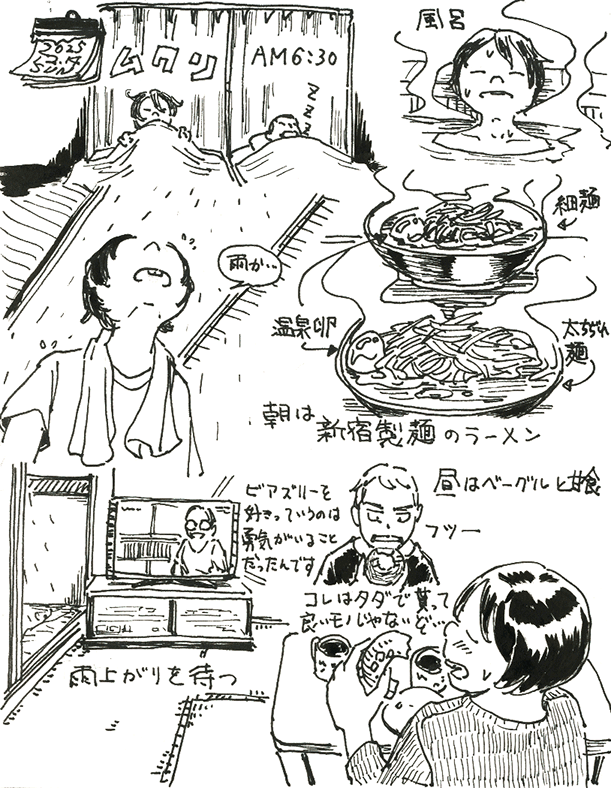 2625
3.4
SUN
ムクリ
AM6:30
ZZZZ
風呂
細麺
雨か…
温泉卵
太ちぢれ
麺
朝は新宿製麺のラーメン
昼はベーグル
ビアズリーを
好きっていうのは
勇気がいること
だったんです
フツー
コレはタダで貰って
良いモノじゃないぞ…
雨上がりを待つ